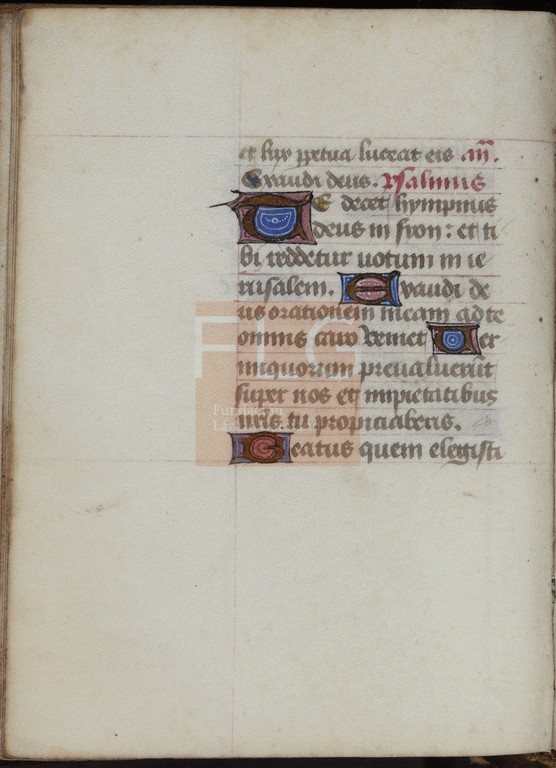 et lux ppetua luceat eis añ.
Exaudi deus. Psalmus
TE decet hympnus
deus in syon: et ti
bi reddetur uotum in ie
rusalem. Exaudi de
us orationem meam ad te
omnis caro veniet Uer
iniquorum preualuerūt
super nos et impietatibus
nr̄is tu propiciaberis.
Beatus quem elegisti
FLG
Fundación